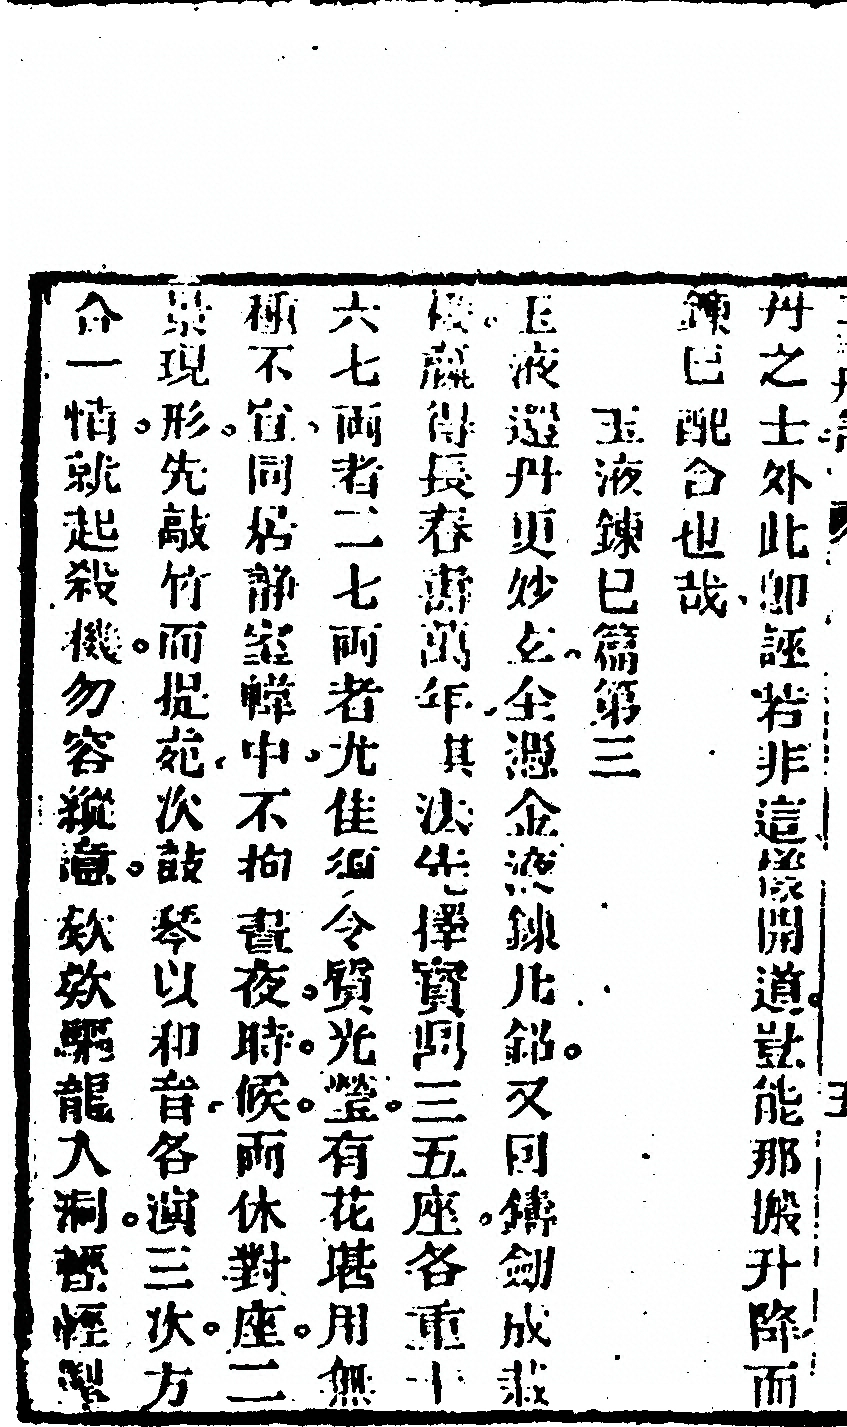 丹之士外此卽誣若非這樣開道豈能那搬升降而
鍊巳配合也哉
玉液鍊巳篇第三
玉液還丹更妙玄全憑金液鍊北鉛又回鑄劍成莊
得長春壽萬年其法先擇寶鼎三五座各重十
六七両者二七両者尤佳須令質光瑩有花堪用無
極不宜同居靜室幃中不拘晝夜時候兩休對座二
景現形先敲竹而提苑次鼓琴以和音各演三次方
合一情就起殺機勿容縱意欸欸驅龍入洞輕輕